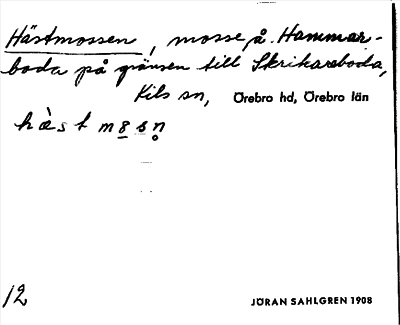 Hästmossen, mosse å Hammar-
boda på gränsen till Skrikareboda,
Kils sn, Örebro hd, Örebro län
hàst m8sn̥
12
JÖRAN SAHLGREN 1908